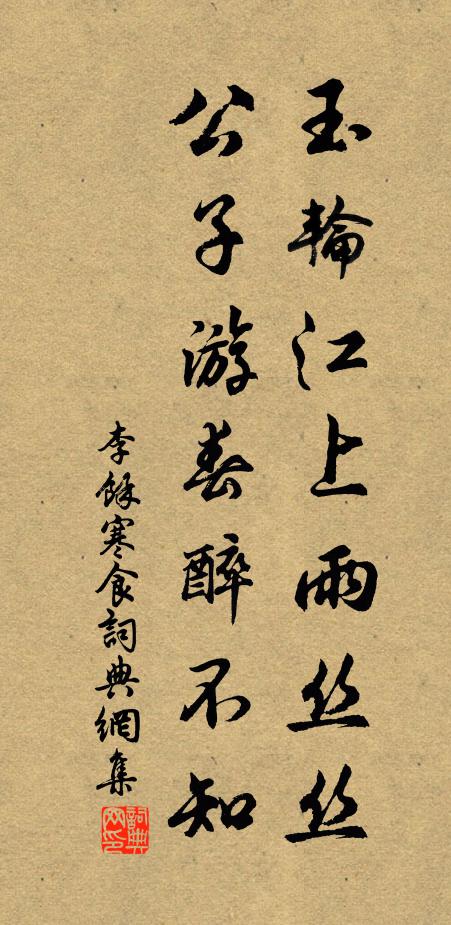 玉輪江上雨丝丝
公子游春醉不知
李餘寒食詞典網集
詞典
网印